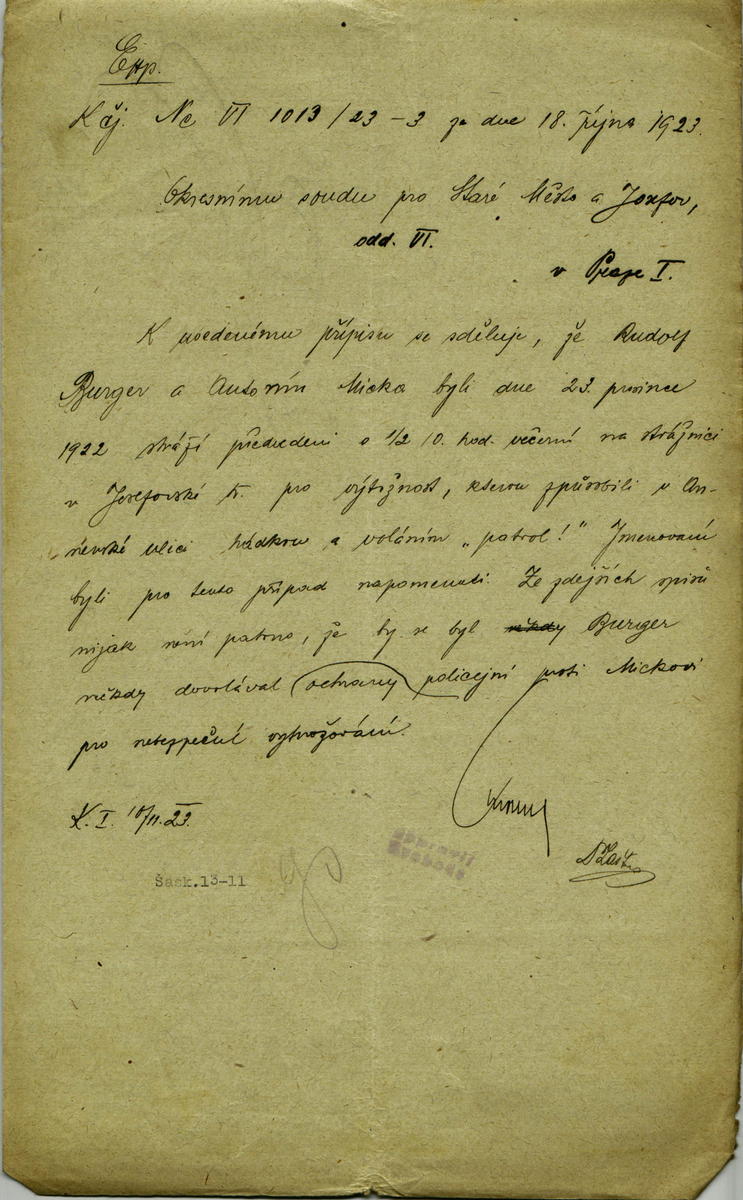 Exp.
K čj. Nc VI 1013/23-3 ze dne 18. října 1923.
Okresnímu soudu pro Staré Město a Josefov,
odd. VI.
v Praze I.
K uvedenému přípisu se sděluje, že Rudolf
Burger a Antonín Micka byli dne 23. prosince
1922 stráží předvedeni o 1/2 10. hod. večerní na strážnici
v Josefovské tř. pro výtržnost, kterou způsobili v An-
enské ulici hádkou a voláním „patrol!" Jmenovaní
byli pro tento případ napomenuti. Ze zdejších spisů
nijak není patrno, že by se byl někdy Burger
někdy dovolával ochrany policejní proti Mickovi
pro nebezpečné vyhrožování.
K. I. 10/11.23.
Šask.13-11